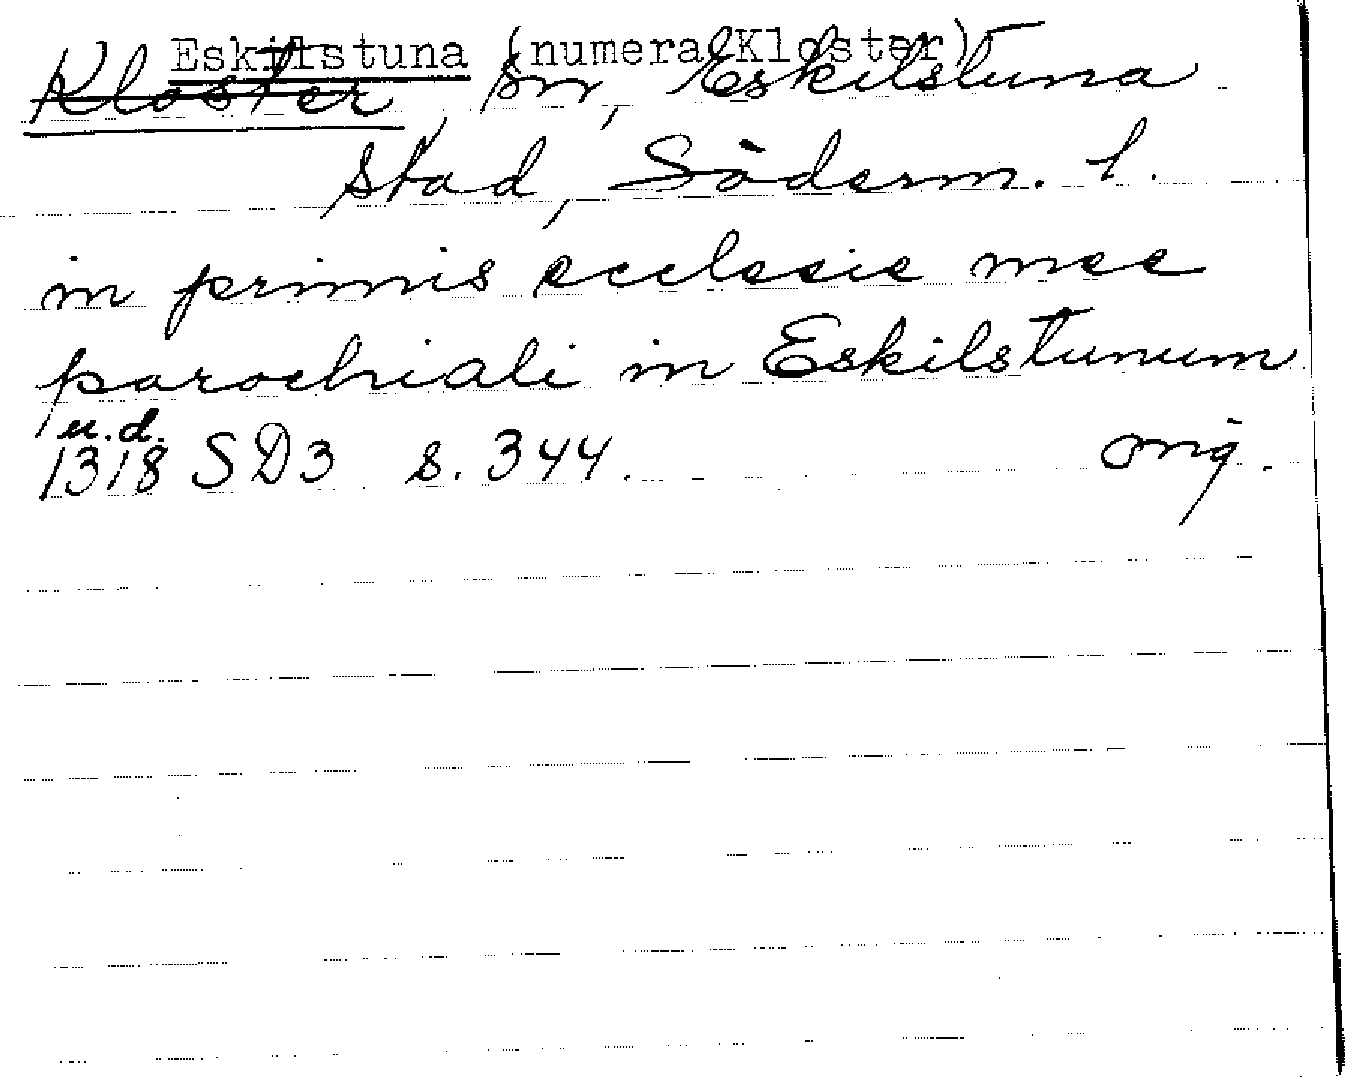 Eskilstuna (numera Kloster)
Kloster sn, Eskilstuna
stad, Söderm. l.
in primis ecclesie mee
parochiali in Eskilstunum
u.d.
1318 SD3 s. 344. orig.